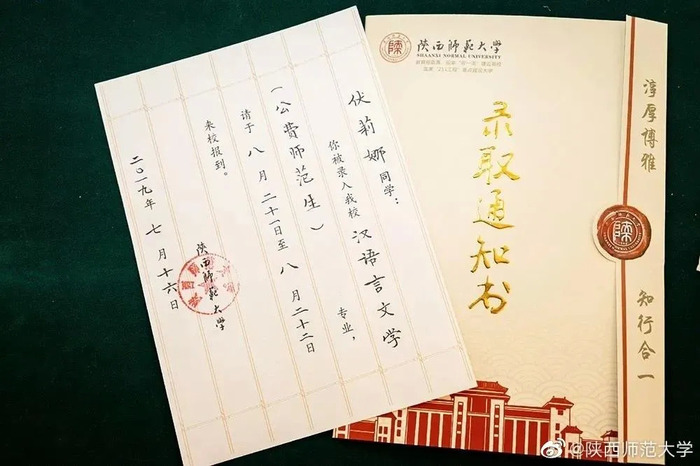 伏莉娜同学：
你被录入我校 汉语言文学 专业，
（公费师范生）
请于 八 月 二十一日至 八 月 二十二日
来校报到。
陕西师范大学
二〇一九年 七 月十六日
陕西师范大学
SHAANXI NORMAL UNIVERSITY
录取通知书
淳厚博雅
知行合一
陕
@陕西师范大学